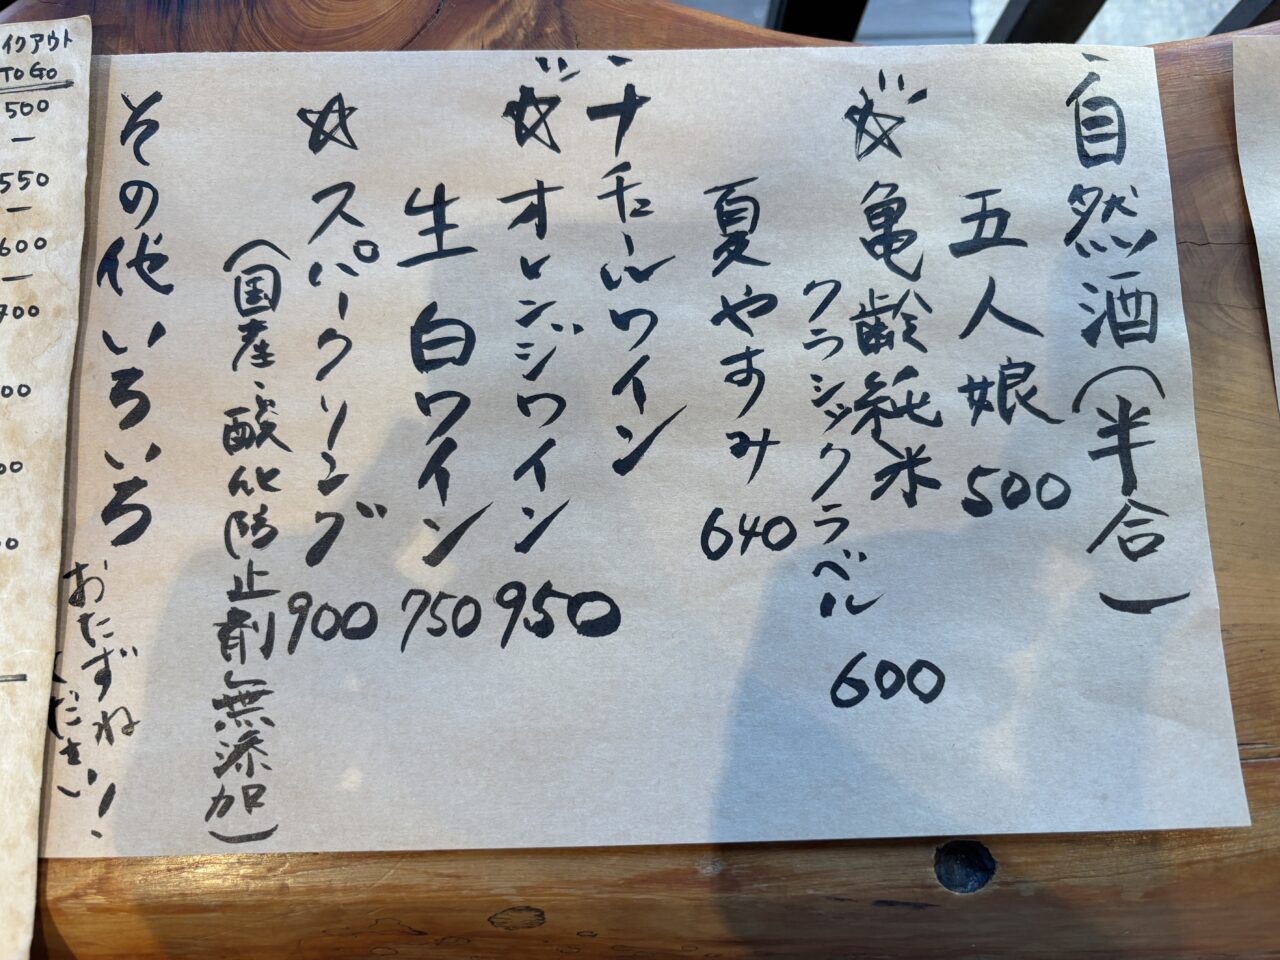 自然酒(半合)
五人娘 500
☆亀齢純米
クラシックラベル 600
夏やすみ 640
ナチュールワイン
☆オレンジワイン 950
生白ワイン 750
☆スパークリング 900
(国産・酸化防止剤無添加)
その他いろいろ
おたずね
ください!
イクアウト
TO GO
500
550
600
700
00
00
00